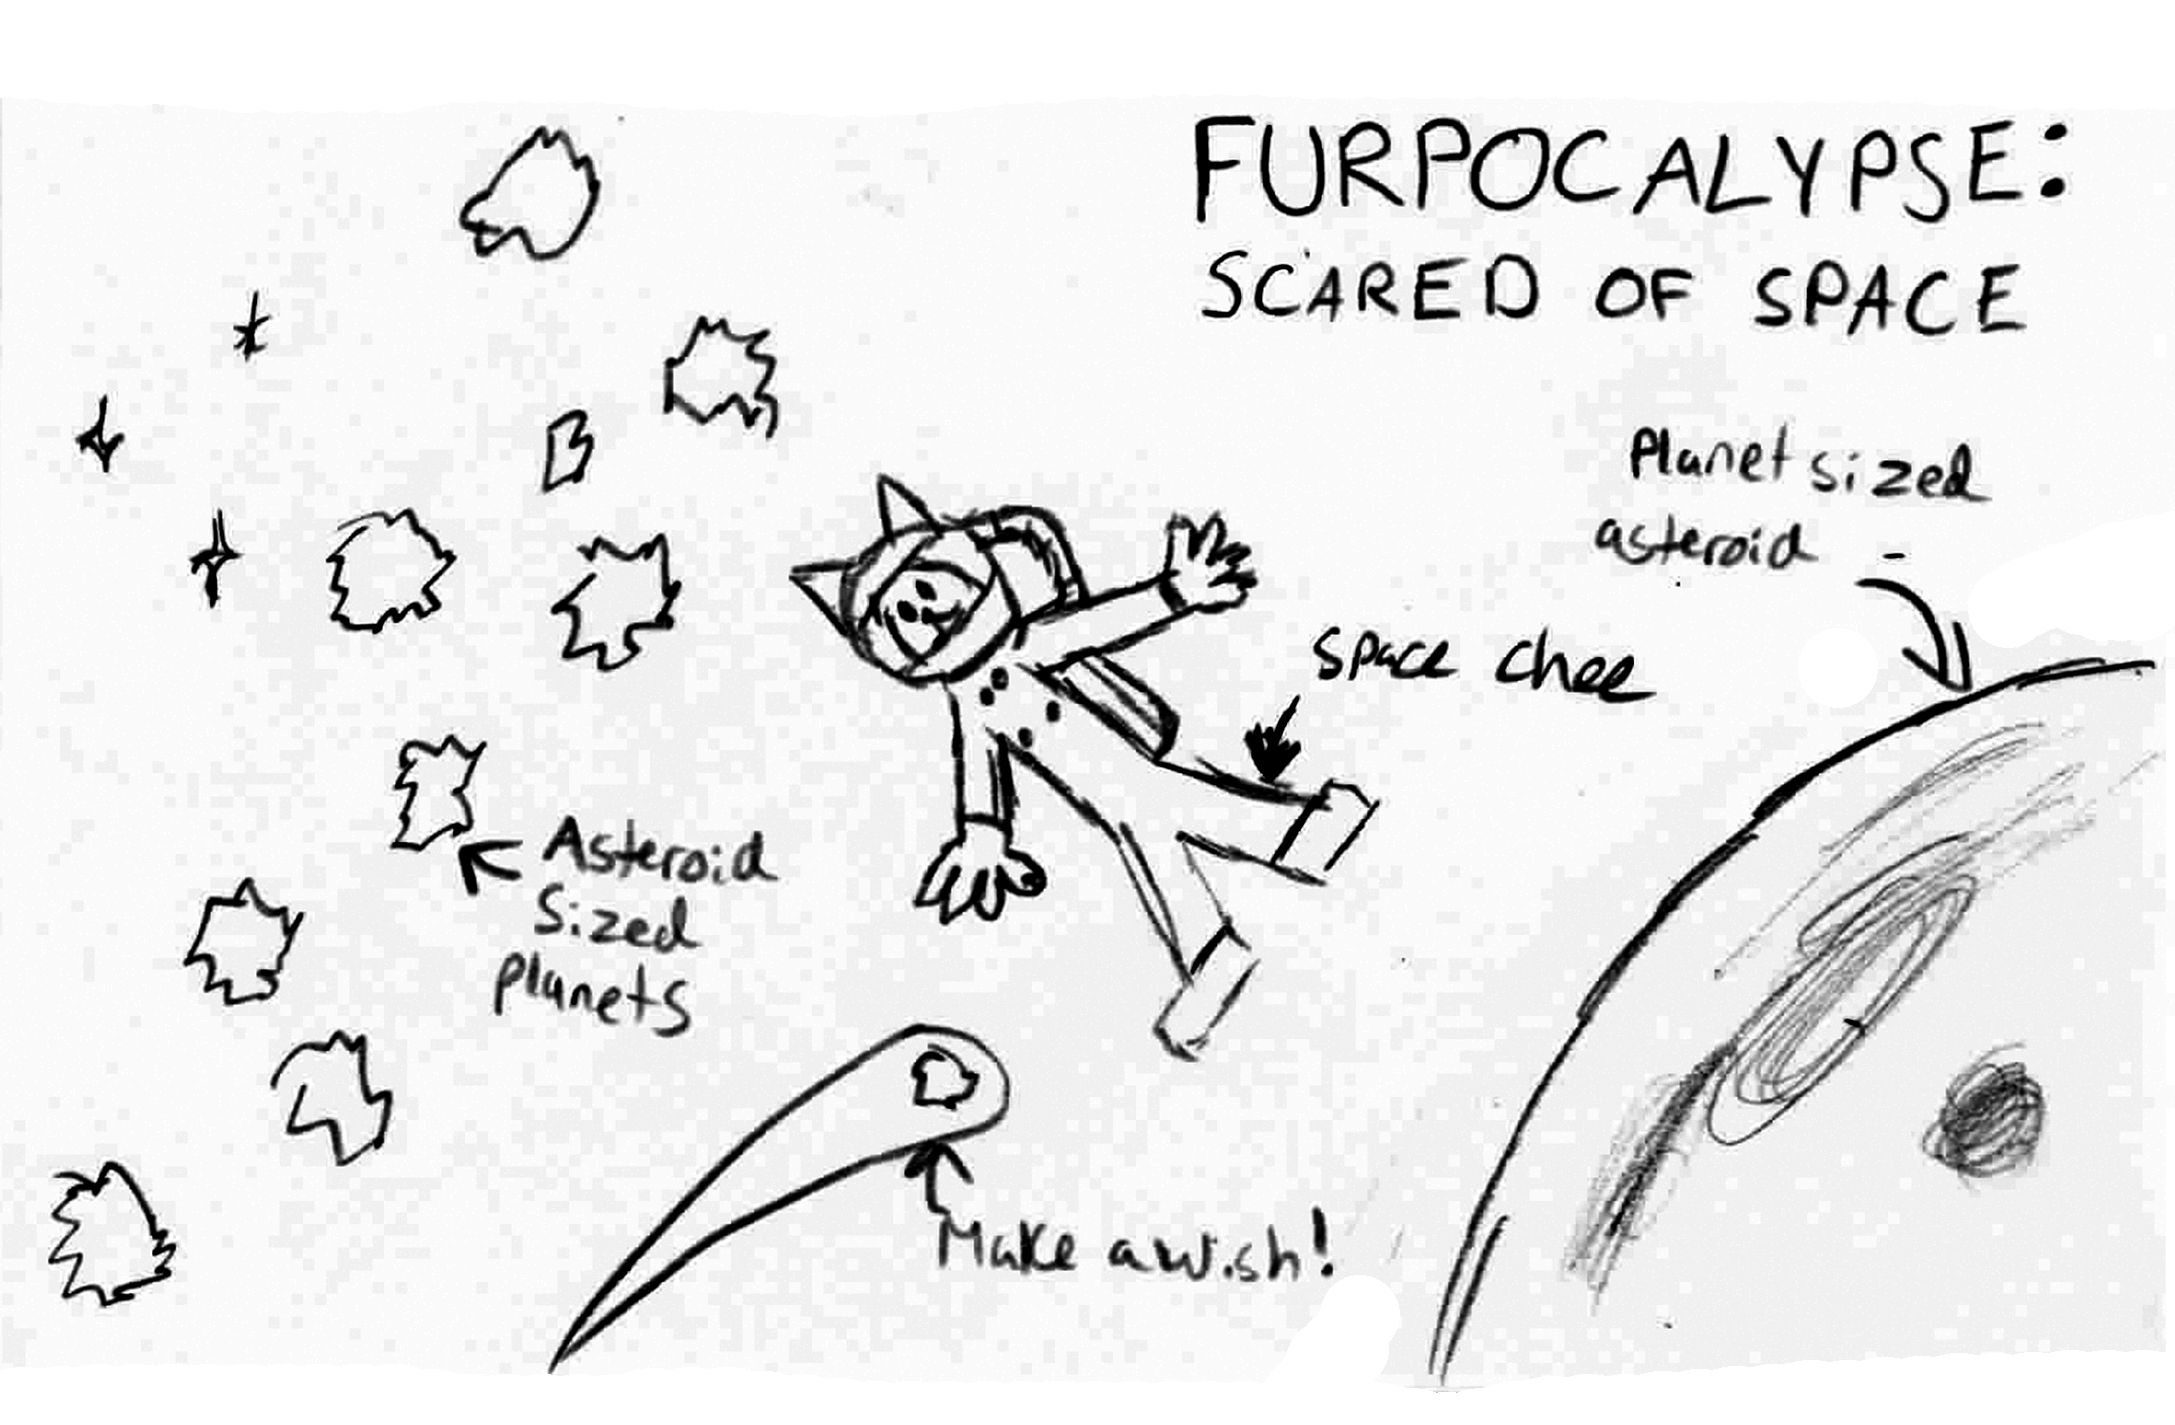 FURPOCALYPSE:
SCARED OF SPACE
Planet sized
asteroid
Space Chee
Asteroid
Sized
Planets
Make a wish!